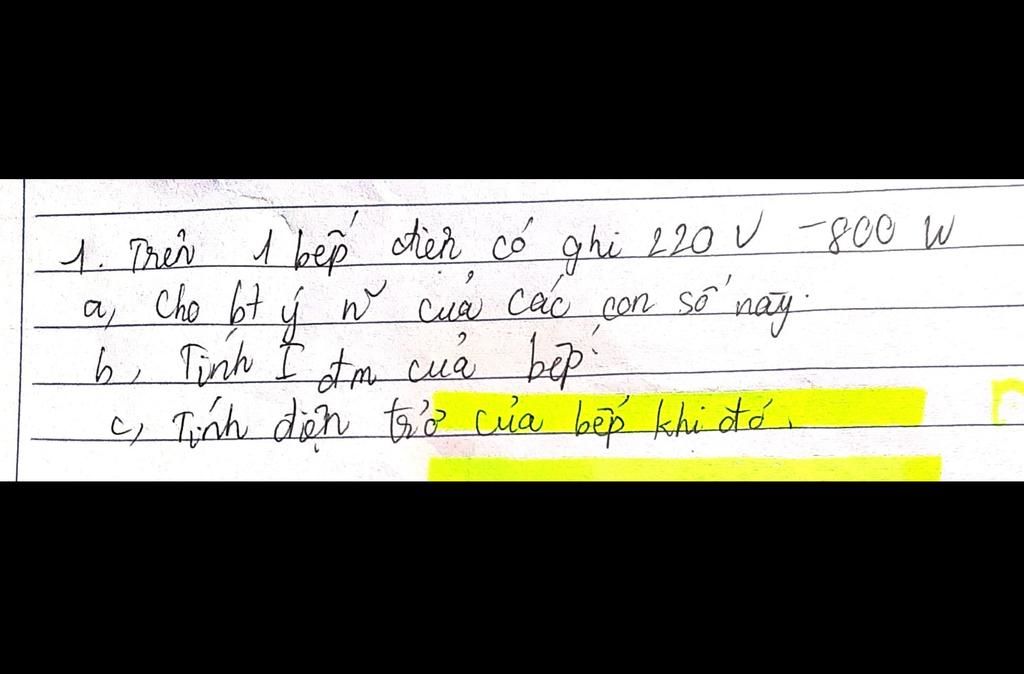 1. Trên 1 bếp điện có ghi 220 V - 800 W
a, Cho bt ý n~ của các con số này.
b, Tính I đm của bếp.
c, Tính điện trở của bếp khi đó.